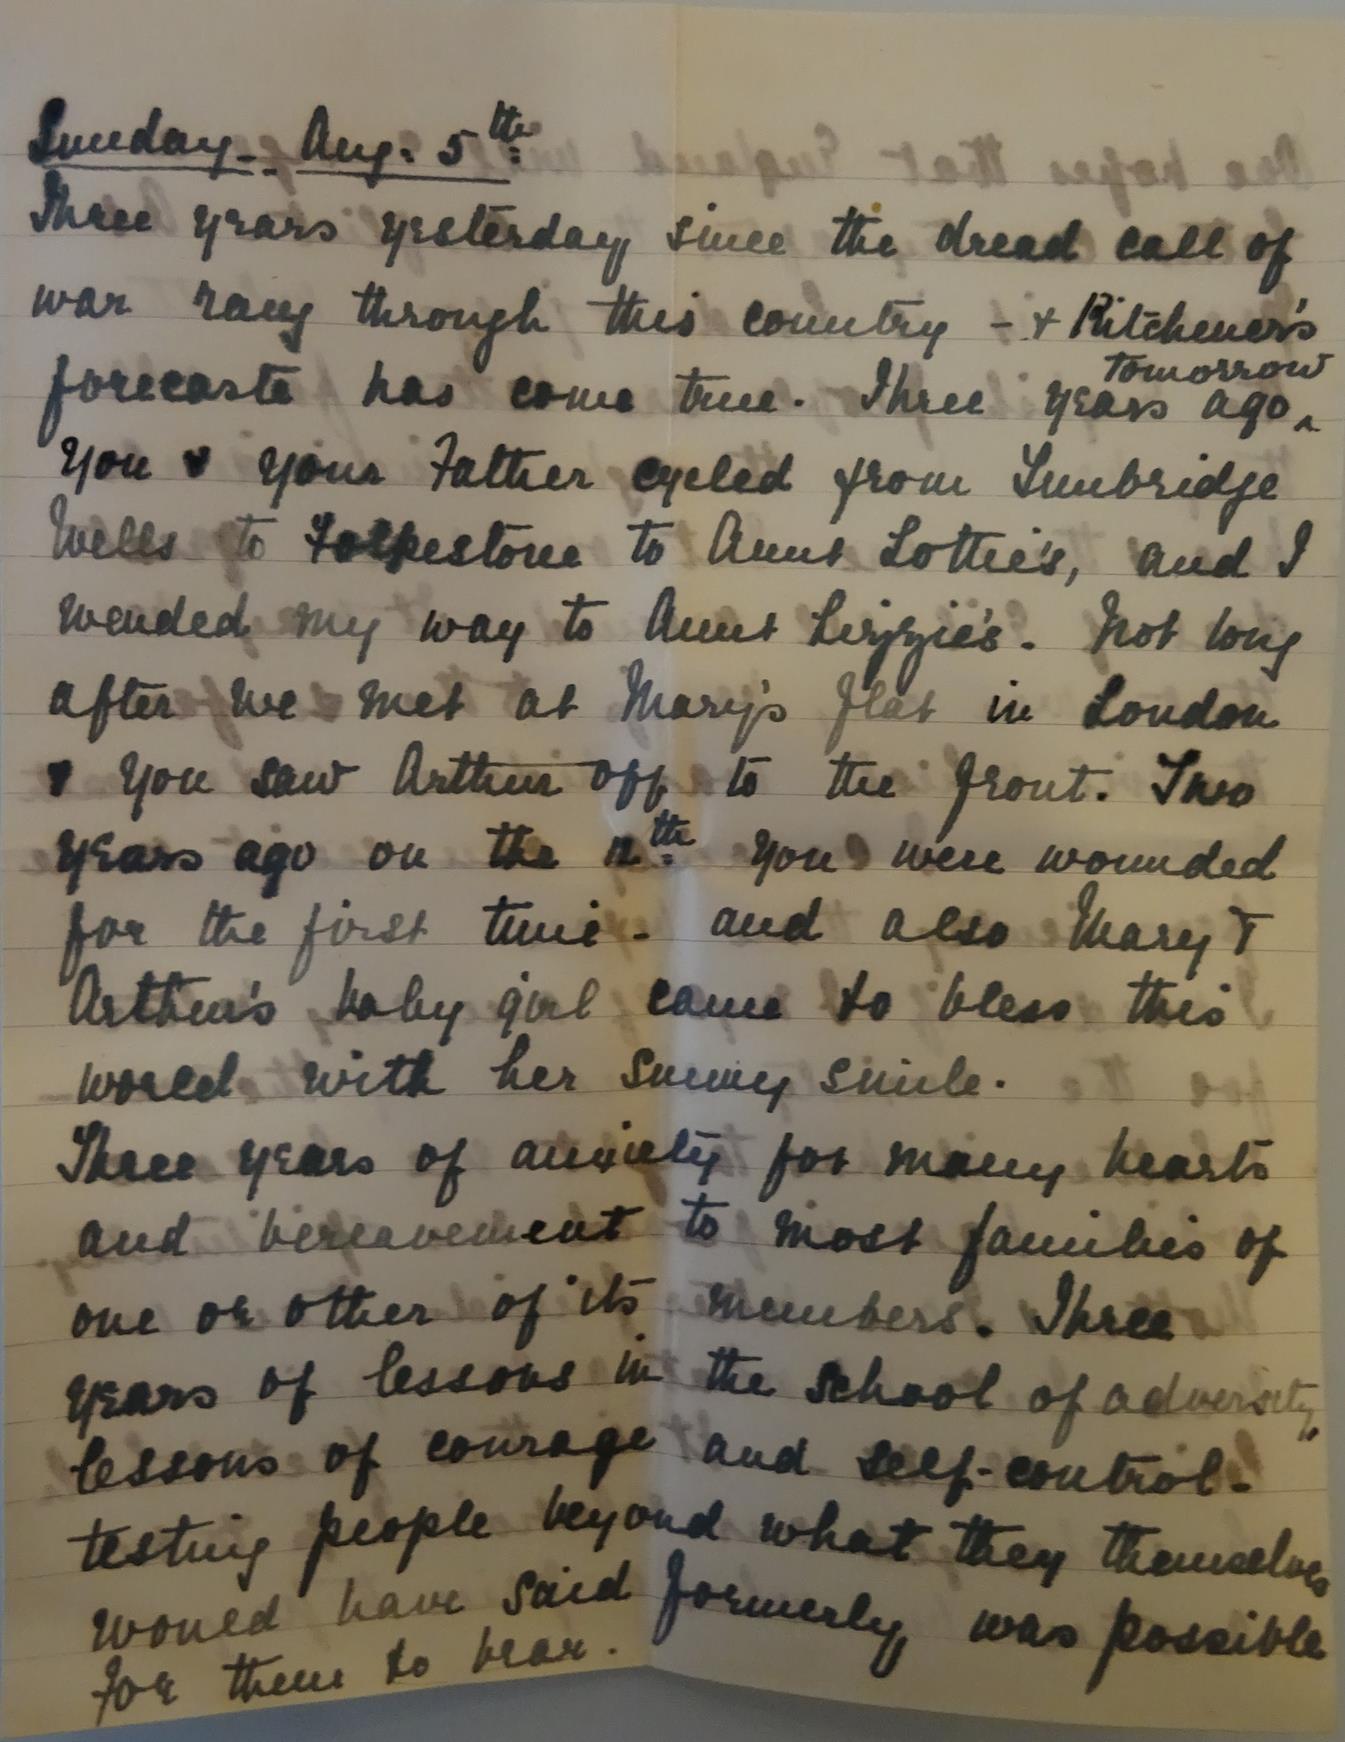 Sunday - Aug: 5th
Three years yesterday since the dread call of
war rang through this country - & Kitchener's
forecaste has come true. Three years ago ^ tomorrow
you & your Father cycled from Tunbridge
Wells to Folkestone to Aunt Lottie's, and I
wended my way to Aunt Lizzie's. Not long
after we met at Mary's flat in London
& you saw Arthur off to the front. Two
years ago on the 12th you were wounded
for the first time - and also Mary &
Arthur's baby girl came to bless this
world with her sunny smile.
Three years of anxiety for many hearts
and bereavement to most families of
one or other of its members. Three
years of lessons in the school of adversity,
lessons of courage and self-control -
testing people beyond what they themselves
would have said formerly was possible
for them to bear.